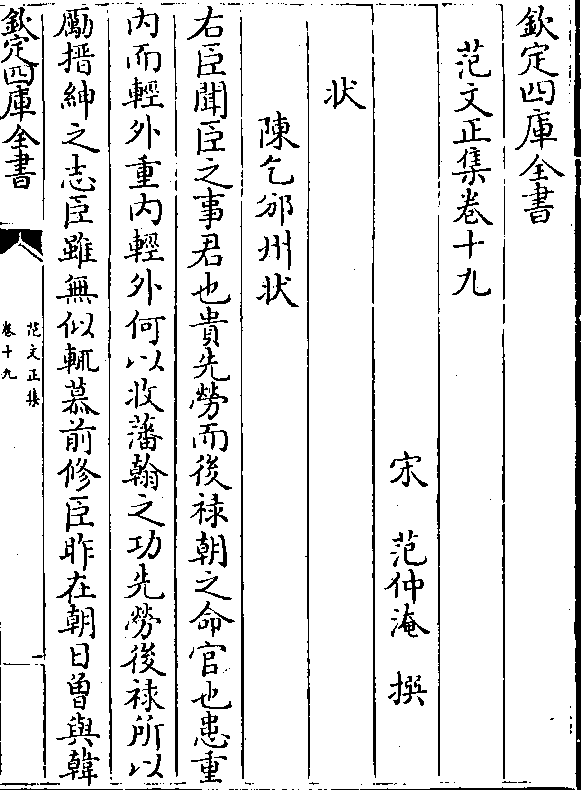 欽定四庫全書
范文正集卷十九
宋 范仲淹 撰
狀
陳乞邠州狀
右臣聞臣之事君也貴先勞而後禄朝之命官也患重
内而輕外重内輕外何以收藩翰之功先勞後禄所以
勵搢紳之志臣雖無似輒慕前修臣昨在朝日曽與韓
欽定四庫全書
范文正集
卷十九